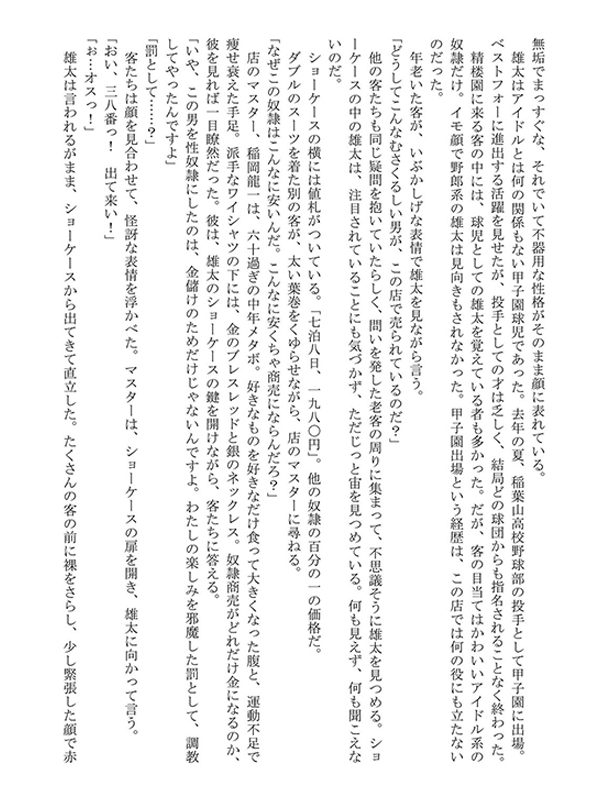 無垢でまっすぐな、それでいて不器用な性格がそのまま顔に表れている。
雄太はアイドルとは何の関係もない甲子園球児であった。去年の夏、稲葉山高校野球部の投手として甲子園に出場。
ベストフォーに進出する活躍を見せたが、投手としての才は乏しく、結局どの球団からも指名されることなく終わった。
精楼園に来る客の中には、球児としての雄太を覚えている者も多かった。だが、客の目当てはかわいいアイドル系の
奴隷だけ。イモ顔で野郎系の雄太は見向きもされなかった。甲子園出場という経歴は、この店では何の役にも立たない
のだった。
年老いた客が、いぶかしげな表情で雄太を見ながら言う。
「どうしてこんなむさくるしい男が、この店で売られているのだ？」
他の客たちも同じ疑問を抱いていたらしく、問いを発した老客の周りに集まって、不思議そうに雄太を見つめる。ショ
ーケースの中の雄太は、注目されていることにも気づかず、ただじっと宙を見つめている。何も見えず、何も聞こえな
いのだ。
ショーケースの横には値札がついている。「七泊八日、一九八〇円」。他の奴隷の百分の一の価格だ。
ダブルのスーツを着た別の客が、太い葉巻をくゆらせながら、店のマスターに尋ねる。
「なぜこの奴隷はこんなに安いんだ。こんなに安くちゃ商売にならんだろ？」
店のマスター、稲岡龍一は、六十過ぎの中年メタボ。好きなものを好きなだけ食って大きくなった腹と、運動不足で
痩せ衰えた手足。派手なワイシャツの下には、金のブレスレッドと銀のネックレス。奴隷商売がどれだけ金になるのか、
彼を見れば一目瞭然だった。彼は、雄太のショーケースの鍵を開けながら、客たちに答える。
「いや、この男を性奴隷にしたのは、金儲けのためだけじゃないんですよ。わたしの楽しみを邪魔した罰として、調教
してやったんですよ」
「罰として……？」
客たちは顔を見合わせて、怪訝な表情を浮かべた。マスターは、ショーケースの扉を開き、雄太に向かって言う。
「おい、三八番っ！　出て来い！」
「ぉ…オスっ！」
雄太は言われるがまま、ショーケースから出てきて直立した。たくさんの客の前に裸をさらし、少し緊張した顔で赤